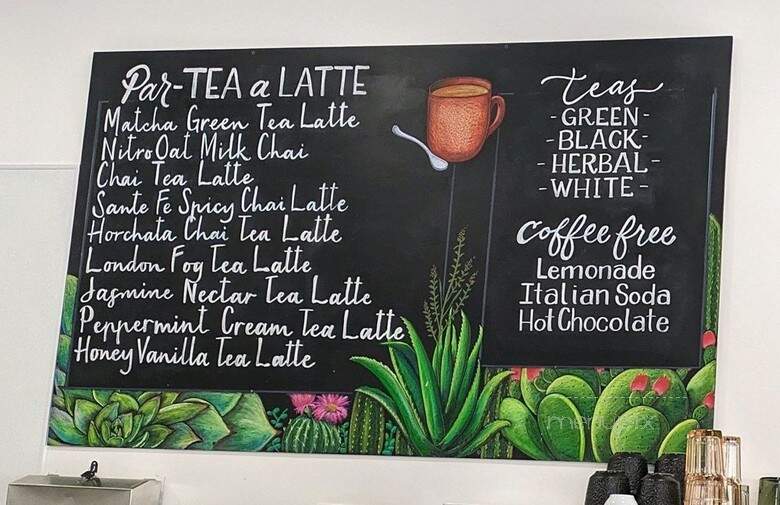 Par-TEA a LATTE
Matcha Green Tea Latte
Nitro Oat Milk Chai
Chai Tea Latte
Sante Fe Spicy Chai Latte
Horchata Chai Tea Latte
London Fog Tea Latte
Jasmine Nectar Tea Latte
Peppermint Cream Tea Latte
Honey Vanilla Tea Latte
teas
-GREEN-
-BLACK-
-HERBAL-
-WHITE-
coffee free
Lemonade
Italian Soda
Hot Chocolate
menupix